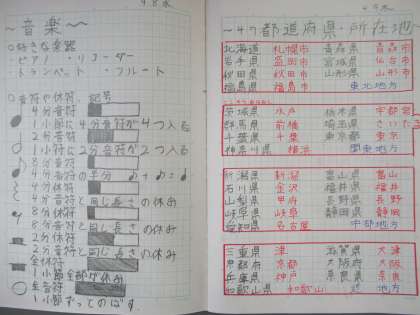 4.8水
～音楽～
○好きな楽器
・ピアノ ・リコーダー
・トランペット ・フルート
○音符や休符、記号
4分音符
1小節に4分音符が4つ入る
2分音符
1小節に2分音符が2つ入る
8分音符
4分音符の半分 ♪+♪=♩
4分休符
4分音符と同じ長さの休み
8分休符
8分音符と同じ長さの休み
2分休符
2分音符と同じ長さの休み
全休符
1小節全部が休み
全音符
1小節ずっとのばす
4.9木
～47都道府県・所在地～
北海道 札幌市 青森県 青森市
岩手県 盛岡市 宮城県 仙台市
秋田県 秋田市 山形県 山形市
福島県 福島市 東北地方
茨城県 水戸 栃木県 宇都宮
群馬県 前橋 埼玉県 さいたま
千葉県 千葉 東京都 東京
神奈川県 横浜 関東地方
新潟県 新潟 富山県 富山
石川県 金沢 福井県 福井
山梨県 甲府 長野県 長野
岐阜県 岐阜 静岡県 静岡
愛知県 名古屋 中部地方
三重県 津 滋賀県 大津
京都府 京都 大阪府 大阪
兵庫県 神戸 奈良県 奈良
和歌山県 和歌山 近 地方